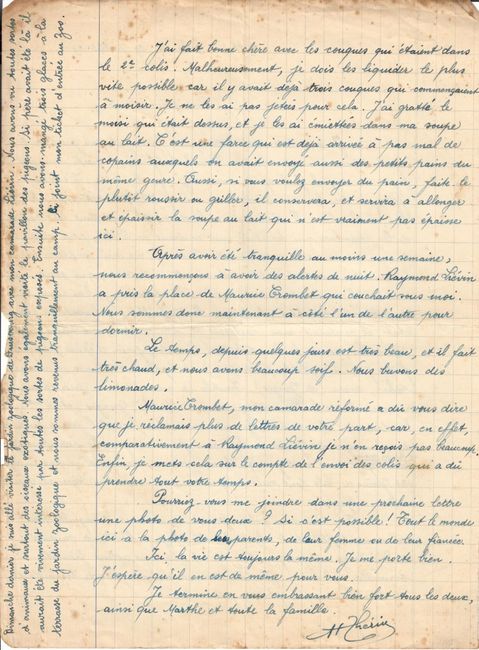 J'ai fait bonne chère avec les cougues qui étaient dans
le 2e colis. Malheureusement, je dois les liquider le plus
vite possible car il y avait déjà trois cougues qui commençaient
à moisir. Je ne les ai pas jetés pour cela. J'ai gratté le
moisi qui était dessus, et je les ai émiettées dans ma soupe
au lait. C'est une farce qui est déjà arrivée à pas mal de
copains auxquels on avait envoyé aussi des petits pains du
même genre. Aussi, si vous voulez envoyer du pain, faite le
plutôt roussir ou griller, il conservera, et servira à allonger
et épaissir la soupe au lait qui n'est vraiment pas épaisse
ici.
Après avoir été tranquille au moins une semaine,
nous recommençons à avoir des alertes de nuit. Raymond Liévin
a pris la place de Maurice Trombet qui couchait sous moi.
Nous sommes donc maintenant à côté l'un de l'autre pour
dormir.
Le temps, depuis quelques jours est très beau, et il fait
très chaud, et nous avons beaucoup soif. Nous buvons des
limonades.
Maurice Trombet, mon camarade réformé a dû vous dire
que je réclamais plus de lettres de votre part, car, en effet,
comparativement à Raymond Liévin je n'en reçois pas beaucoup.
Enfin, je mets cela sur le compte de l'envoi des colis qui a dû
prendre tout votre temps.
Pourriez-vous me joindre dans une prochaine lettre
une photo de vous deux ? Si c'est possible ! Tout le monde
ici a la photo de parents, de leur femme ou de leur fiancée.
Ici, la vie est toujours la même. Je me porte bien.
J'espère qu'il en est de même pour vous.
Je termine en vous embrassant bien fort tous les deux,
ainsi que Marthe et toute la famille.
Dimanche dernier je suis allé visiter le jardin zoologique de avec mon camarade Liévin. Nous avons vu toutes sortes
d'animaux et surtout des oiseaux exotiques. Nous avons également visité le pavillon des pigeons. Si père avait été là il
aurait été vivement intéressé par toutes les sortes de pigeons exposés. Ensuite nous avons mangé trois glaces à la
terrasse du jardin zoologique et nous sommes revenus tranquillement au camp. Ci joint mon ticket d'entrée au Zoo.